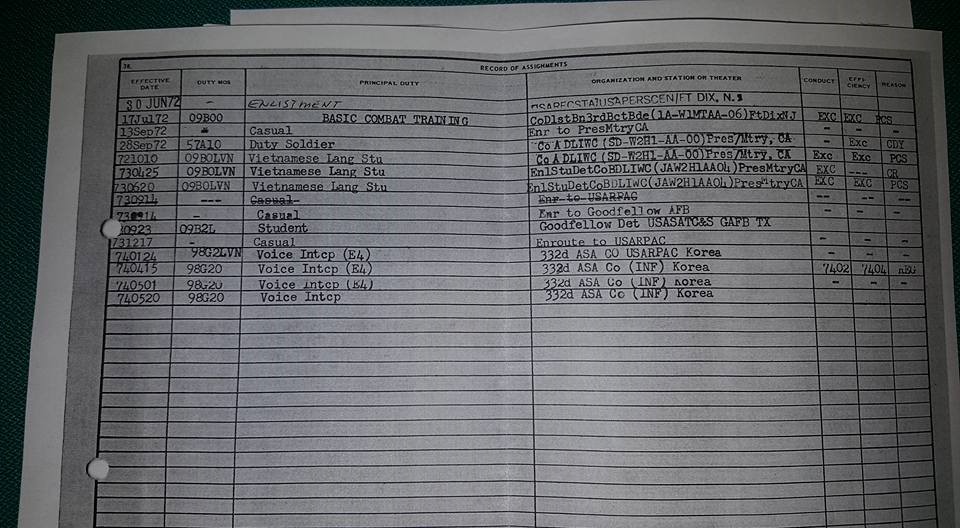 38. RECORD OF ASSIGNMENTS
EFFECTIVE DATE DUTY MOS PRINCIPAL DUTY ORGANIZATION AND STATION OR THEATER CONDUCT EFFI- CIENCY REASON
30 JUN72 - ENLISTMENT FT DIX, N.J
17Jul72 09B00 BASIC COMBAT TRAINING CoD1stBn3rdBctBde(1A-W1MTAA-06)FtDixNJ EXC EXC PCS
13Sep72 - Casual Enr to PresMtryCA - - -
28Sep72 57A10 Duty Soldier Co A DLIWC (SD-W2H1-AA-00)Pres/Mtry, CA - Exc CDY
721010 09B0LVN Vietnamese Lang Stu Co A DLIWC (SD-W2H1-AA-00)Pres/Mtry, CA Exc Exc PCS
730425 09B0LVN Vietnamese Lang Stu EnlStuDetCoBDLIWC(JAW2H1AA04)PresMtryCA EXC --- CR
730620 09B0LVN Vietnamese Lang Stu EnlStuDetCoBDLIWC(JAW2H1AA04)PresMtryCA EXC EXC PCS
730914 --- Casual Enr to USARPAC -- -- --
730914 - Casual Enr to Goodfellow AFB - - -
30923 09B2L Student Goodfellow Det USASATC&S GAFB TX
731217 - Casual Enroute to USARPAC - - -
740124 98G2LVN Voice Intcp (E4) 332d ASA CO USARPAC Korea - - -
740415 98G20 Voice Intcp (E4) 332d ASA Co (INF) Korea 7402 7404
740501 98G20 Voice Intcp (E4) 332d ASA Co (INF) Korea - - -
740520 98G20 Voice Intcp 332d ASA Co (INF) Korea